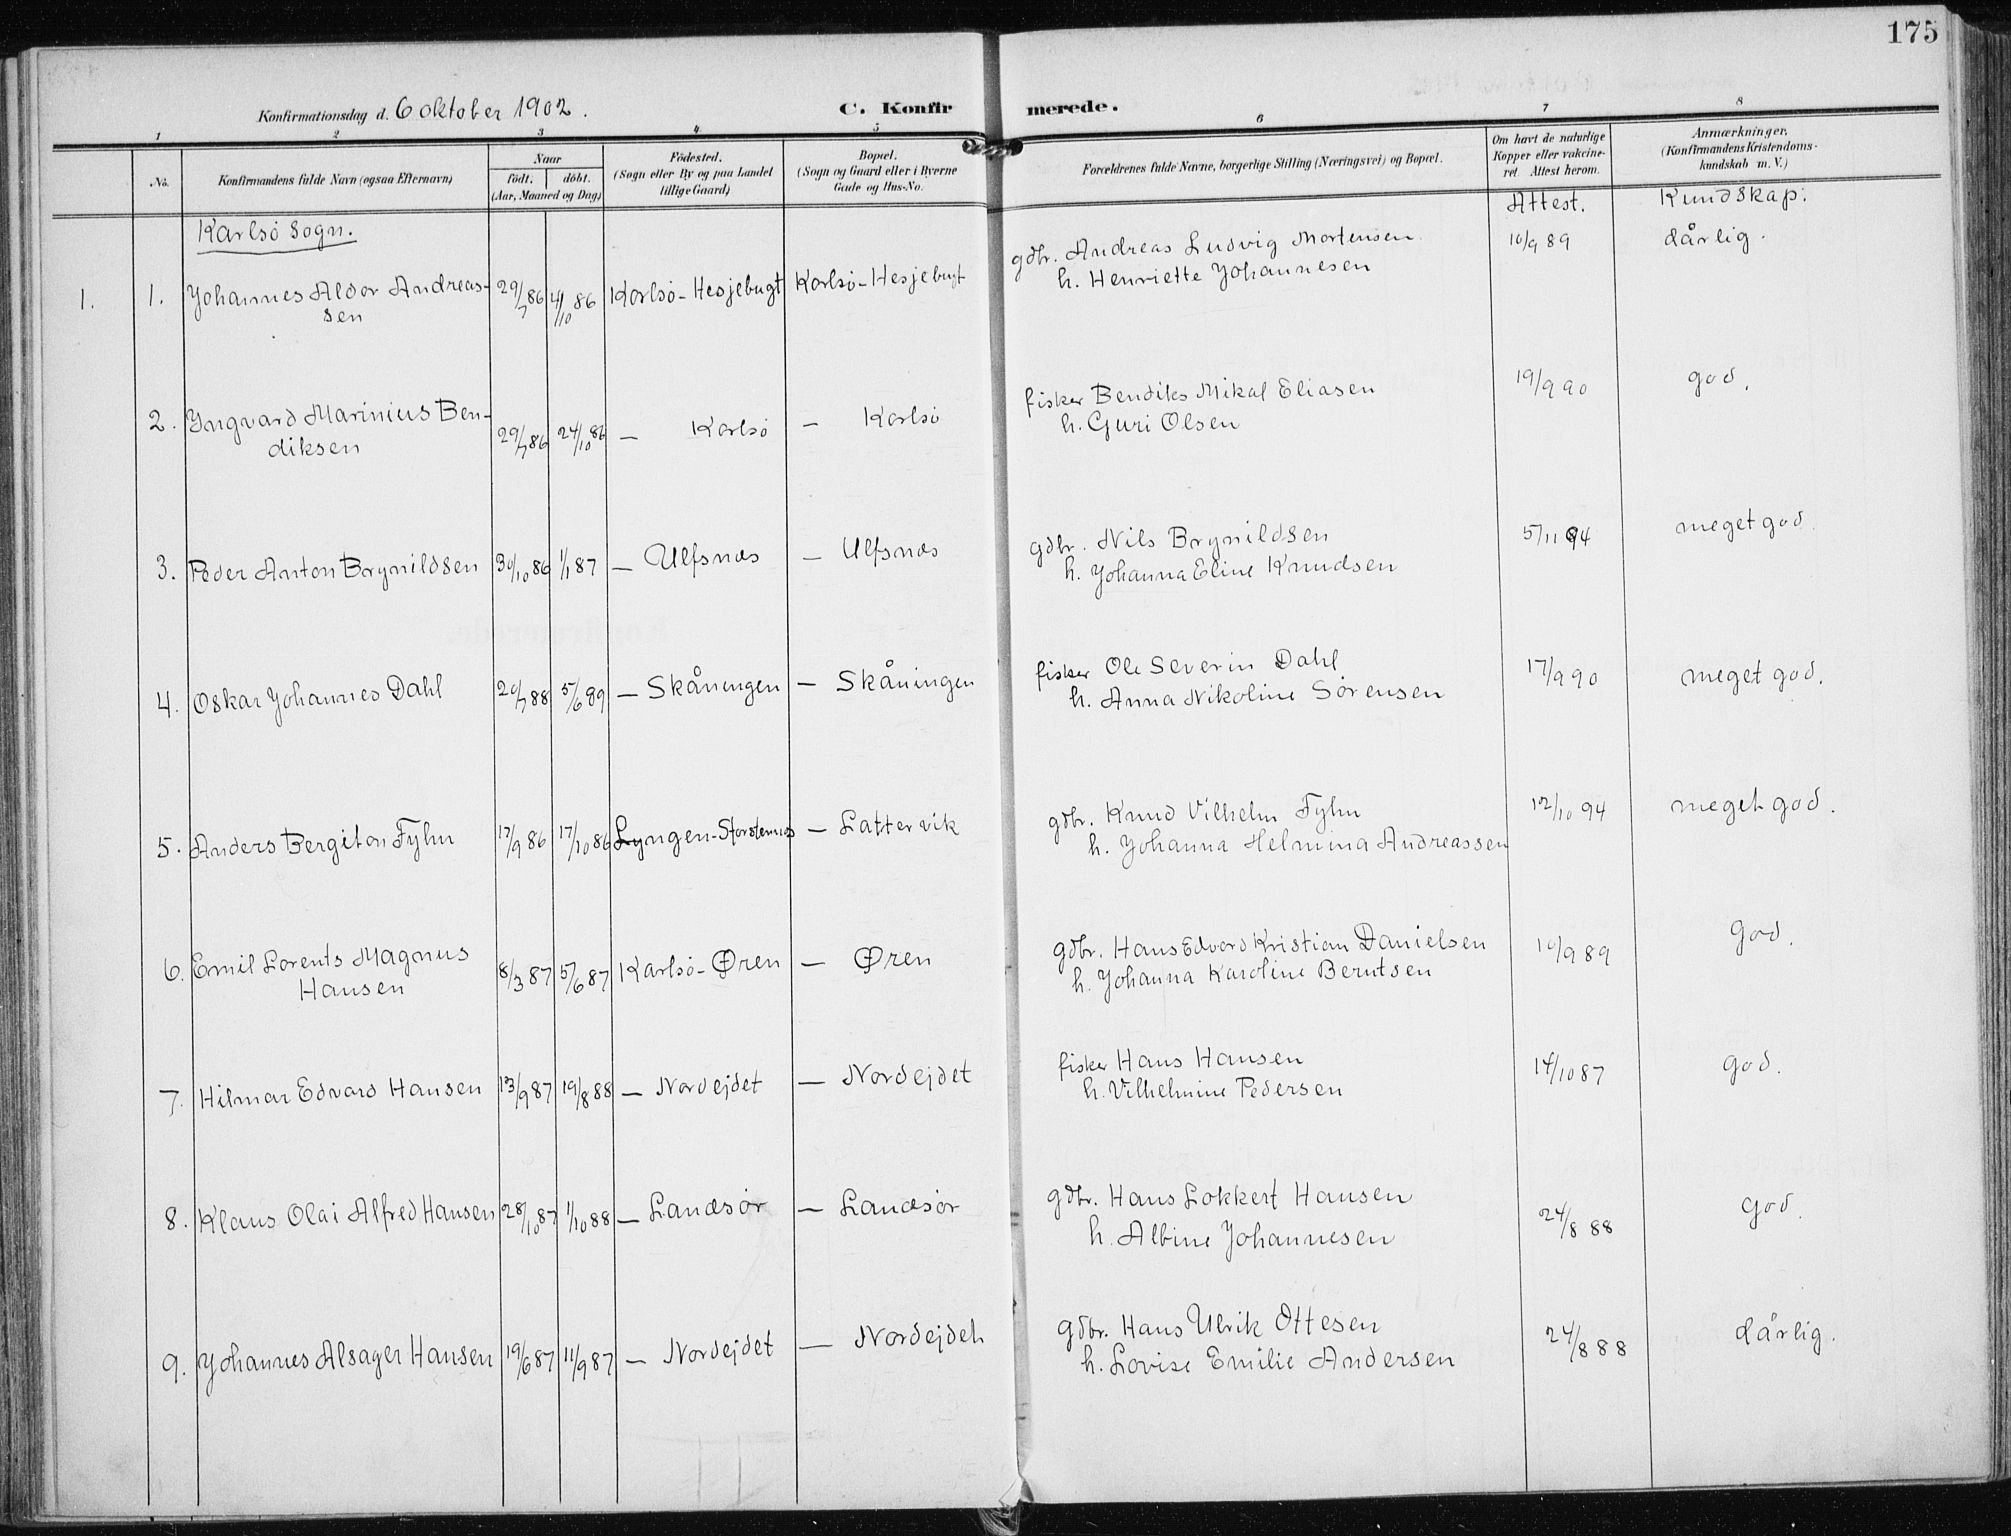 175
Konfirmationsdag d. 6 oktober 1902.
C. Konfirmerede.
1 2 3 4 5 6 7 8
No.
Konfirmandens fulde Navn (ogsaa Efternavn)
Naar
födt. döbt.
(Aar, Maaned og Dag)
Födested.
(Sogn eller By og paa Landet
tillige Gaard)
Bopæl.
(Sogn og Gaard eller i Byerne
Gade og Hus-No.
Forældrenes fulde Navne, borgerlige Stilling (Næringsvei) og Bopæl.
Om havt de naturlige
Kopper eller vakcine-
ret. Attest herom.
Anmærkninger.
(Konfirmandens Kristendoms-
kundskab m. V.)
Attest. Kundskap:
Karlsö sogn.
1. 1. Johannes Aldor Andreas- 29/7 86 4/10 86 Karlsö - Hesjebugt Karlsö - Hesjebugt gdbr. Andreas Ludvig Mortensen 10/9 89 dårlig.
sen h. Henriette Johannesen
2. Yngvard Marinius Ben- 29/7 86 24/10 86 — Karlsö — Karlsö fisker Bendiks Mikal Eliasen 19/9 90 god.
diksen h. Guri Olsen
3. Peder Anton Brynildsen 30/10 86 1/1 87 — Ulfsnæs — Ulfsnæs gdbr. Nils Brynildsen 5/11 94 meget god.
h. Johanna Eline Knudsen
4. Oskar Johannes Dahl 20/7 88 5/6 89 — Skåningen — Skåningen fisker Ole Severin Dahl 17/9 90 meget god.
h. Anna Nikoline Sörensen
5. Anders Bergiton Fyhn 17/9 86 17/10 86 Lyngen - Storstennes — Lattervik gdbr. Knud Vilhelm Fyhn 12/10 94 meget god.
h. Johanna Helmina Andreassen
6. Emil Lorents Magnus 8/3 87 5/6 87 Karlsö - Øren — Øren gdbr. Hans Edvard Kristian Danielsen 10/9 89 god.
Hansen h. Johanna Karoline Berntsen
7. Hilmar Edvard Hansen 13/9 87 19/8 88 — Nordejdet — Nordejdet fisker Hans Hansen 14/10 87 god.
h. Vilhelmine Pedersen
8. Klaus Olai Alfred Hansen 28/10 87 1/10 88 — Landsör — Landsör gdbr. Hans Lokkert Hansen 24/8 88 god.
h. Albine Johannesen
9. Johannes Alsager Hansen 19/6 87 11/9 87 — Nordejdet — Nordejdet gdbr. Hans Ulrik Ottesen 24/8 88 dårlig.
h. Lovise Emilie Andersen